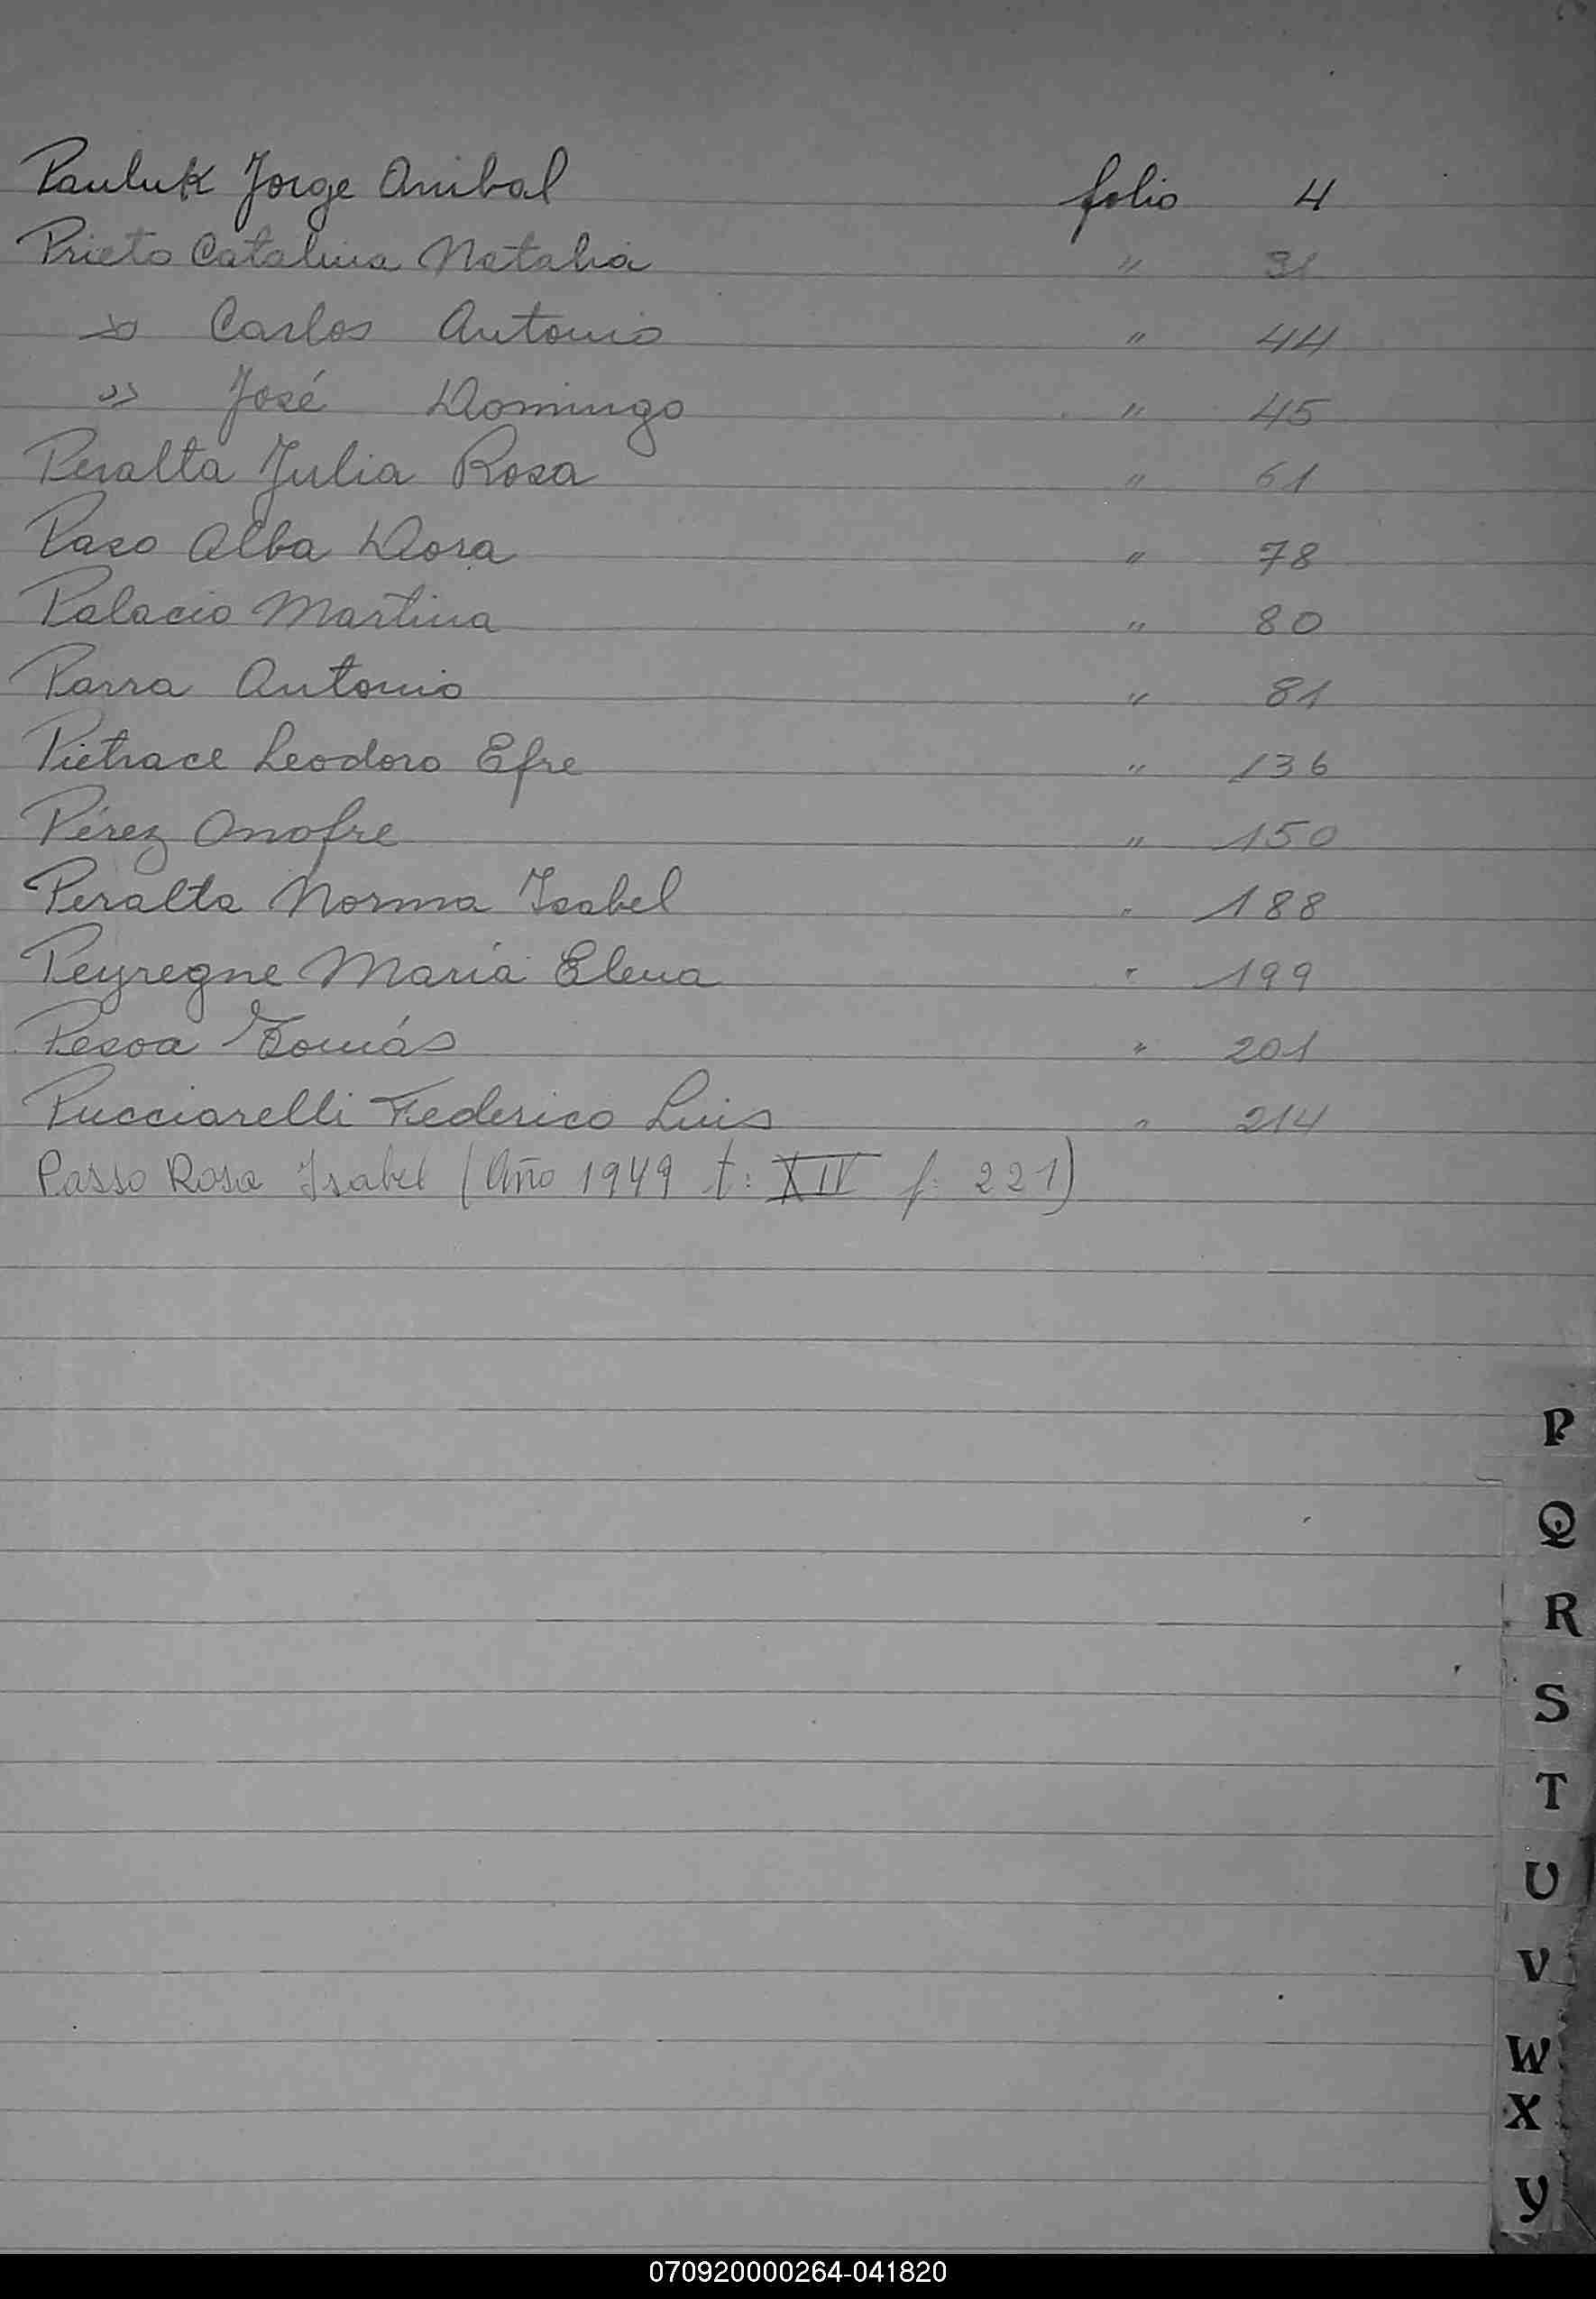 Pauluk Jorge Anibal folio 4
Prieto Catalina Natalia " 31
" Carlos Antonio " 44
" José Domingo " 45
Peralta Julia Rosa " 61
Paso Alba Dora " 78
Palacio Martina " 80
Parra Antonio " 81
Pietrace Leodoro Efre " 136
Pérez Onofre " 150
Peralta Norma Isabel " 188
Peyregne María Elena " 199
Pesoa Tomás " 201
Pucciarelli Federico Luis " 214
Passo Rosa Isabel (Año 1949 t: XIV f: 221)
P
Q
R
S
T
U
V
W
X
Y
070920000264-041820